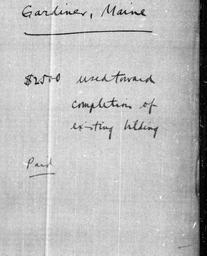 Gardiner, Maine
$2500 used toward
completion of
existing blding
Paid